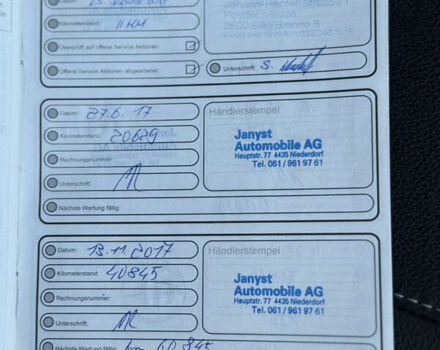 Datum:
Kilometerstand: 11 KM
Überprüft auf offene Service Aktionen
Offene Service Aktionen abgearbeitet
Unterschrift:
Datum: 27.6.17
Händlerstempel
Kilometerstand: 20629
Janyst
Automobile AG
Hauptstr. 77 4435 Niederdorf
Tel. 061 / 961 97 61
Rechnungsnummer:
Unterschrift:
Nächste Wartung fällig:
Datum: 13.11.2017
Händlerstempel
Kilometerstand: 40845
Janyst
Automobile AG
Hauptstr. 77 4435 Niederdorf
Tel. 061 / 961 97 61
Rechnungsnummer:
Unterschrift:
Nächste Wartung fällig: 60 845